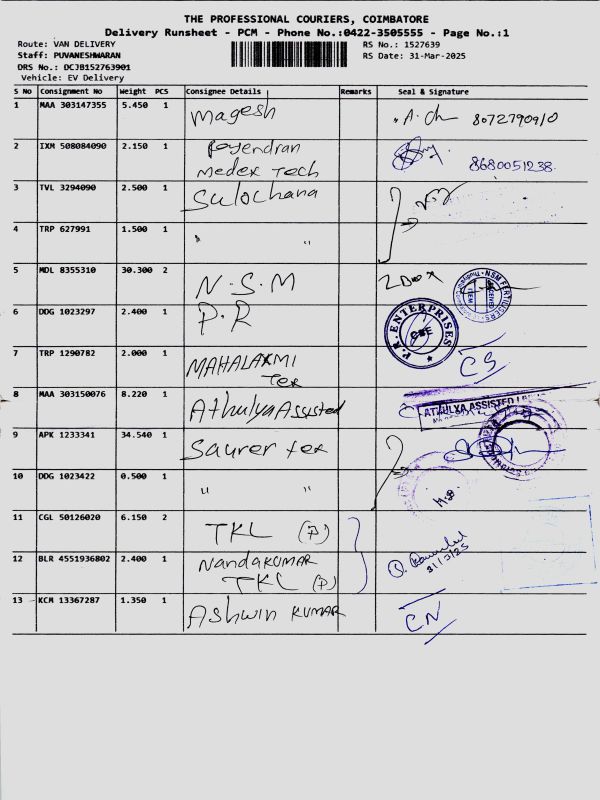 THE PROFESSIONAL COURIERS, COIMBATORE
Delivery Runsheet - PCM - Phone No.:0422-3505555 - Page No.:1
Route: VAN DELIVERY RS No.: 1527639
Staff: PUVANESHWARAN RS Date: 31-Mar-2025
DRS No.: DCJB152763901
Vehicle: EV Delivery
S No Consignment No Weight PCS Consignee Details Remarks Seal & Signature
1 MAA 303147355 5.450 1 Magesh 8072790910
2 IXM 508084090 2.150 1 8680051238
Medex Tech
3 TVL 3294090 2.500 1 Sulochana
4 TRP 627991 1.500 1 "
5 MDL 8355310 30.300 2 N.S.M
NSM FERTILISERS
6 DDG 1023297 2.400 1 P.R
P.R. ENTERPRISES
7 TRP 1290782 2.000 1 MAHALAXMI CS
Tex
8 MAA 303150076 8.220 1 Athulya Assisted
ATHULYA ASSISTED
9 APK 1233341 34.540 1 Saurer tex
10 DDG 1023422 0.500 1 " "
11 CGL 50126020 6.150 2 TKL (P)
12 BLR 4551936802 2.400 1 Nandakumar
TKL (P) 31/3/25
13 KCM 13367287 1.350 1 Ashwin KUMAR CN